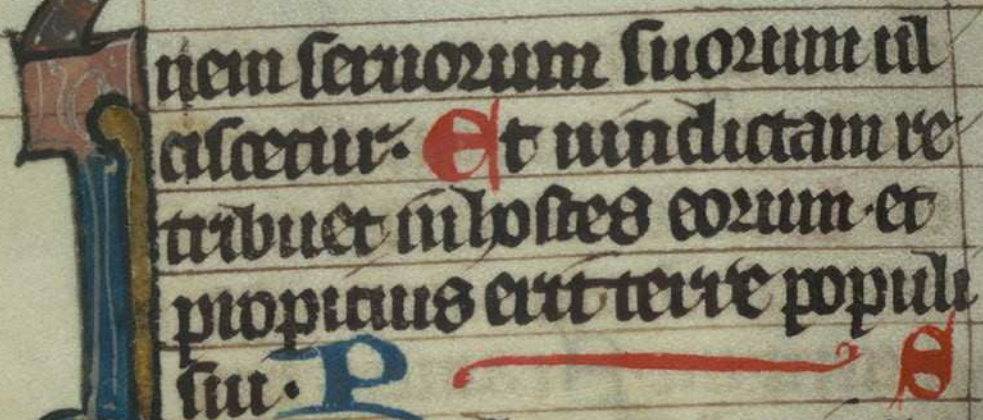 nem seruorum suorum ul
ciscetur. Et uindictam re
tribuet in hostes eorum. et
propicius erit terre populi
sui. P S